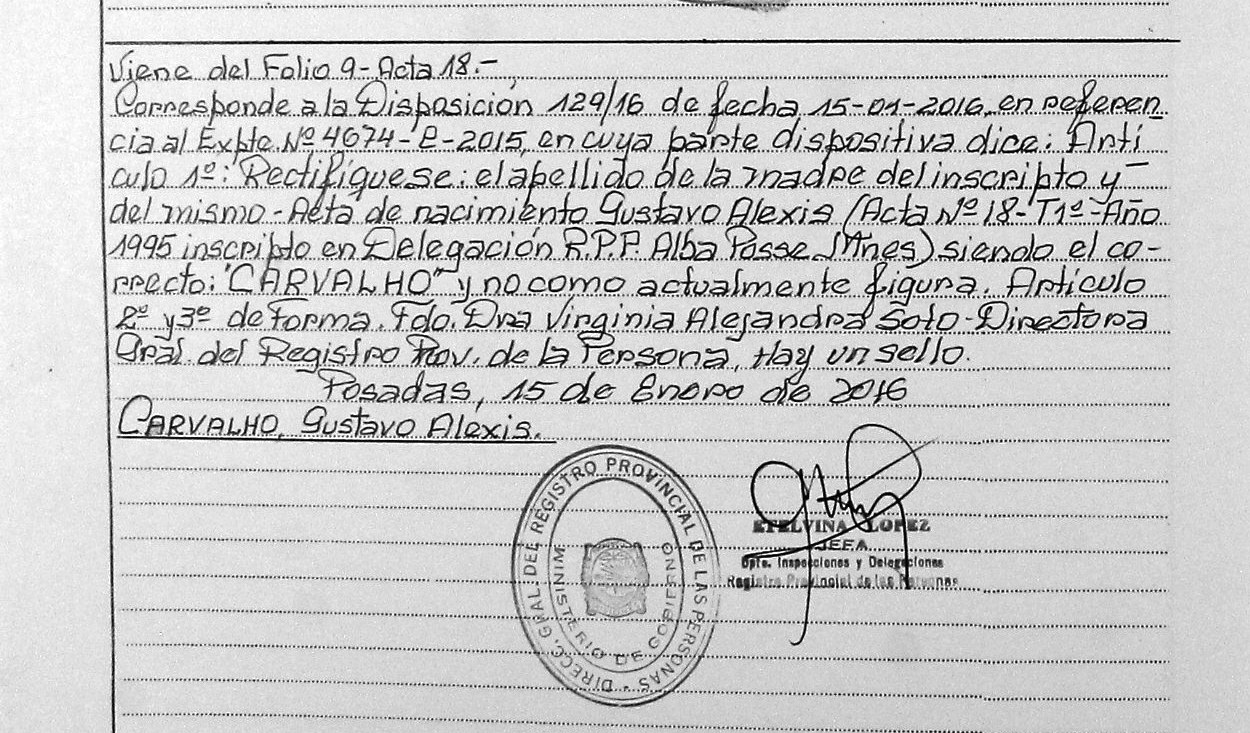 Viene del Folio 9-Acta 18.-
Corresponde a la Disposición 129/16 de fecha 15-01-2016, en referen
cia al Expte. Nº 4674-R-2015, en cuya parte dispositiva dice: Artí
culo 1º: Rectifíquese: el apellido de la madre del inscripto y
del mismo-Acta de nacimiento Gustavo Alexis (Acta Nº 18-T1º-Año
1995 inscripto en Delegación R.P.P. Alba Posse Mnes) siendo el co-
rrecto: "CARVALHO" y no como actualmente figura. Artículo
2º y 3º de Forma. Fdo. Dra Virginia Alejandra Soto-Directora
Gral. del Registro Prov. de la Persona, Hay un sello.
Posadas, 15 de Enero de 2016
CARVALHO, Gustavo Alexis.
DIRECC. GRAL. DEL REGISTRO PROVINCIAL DE LAS PERSONAS
MINISTERIO DE GOBIERNO
ETELVINA LOPEZ
JEFA
Dpto. Inspecciones y Delegaciones
Registro Provincial de las Personas